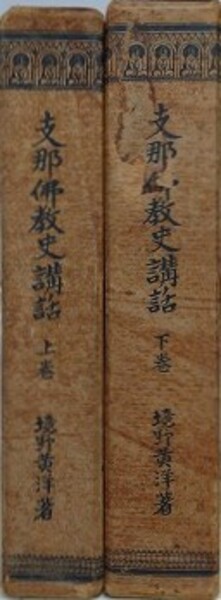 支那佛教史講話
上巻
境野黄洋著
支那佛教史講話
下巻
境野黄洋著